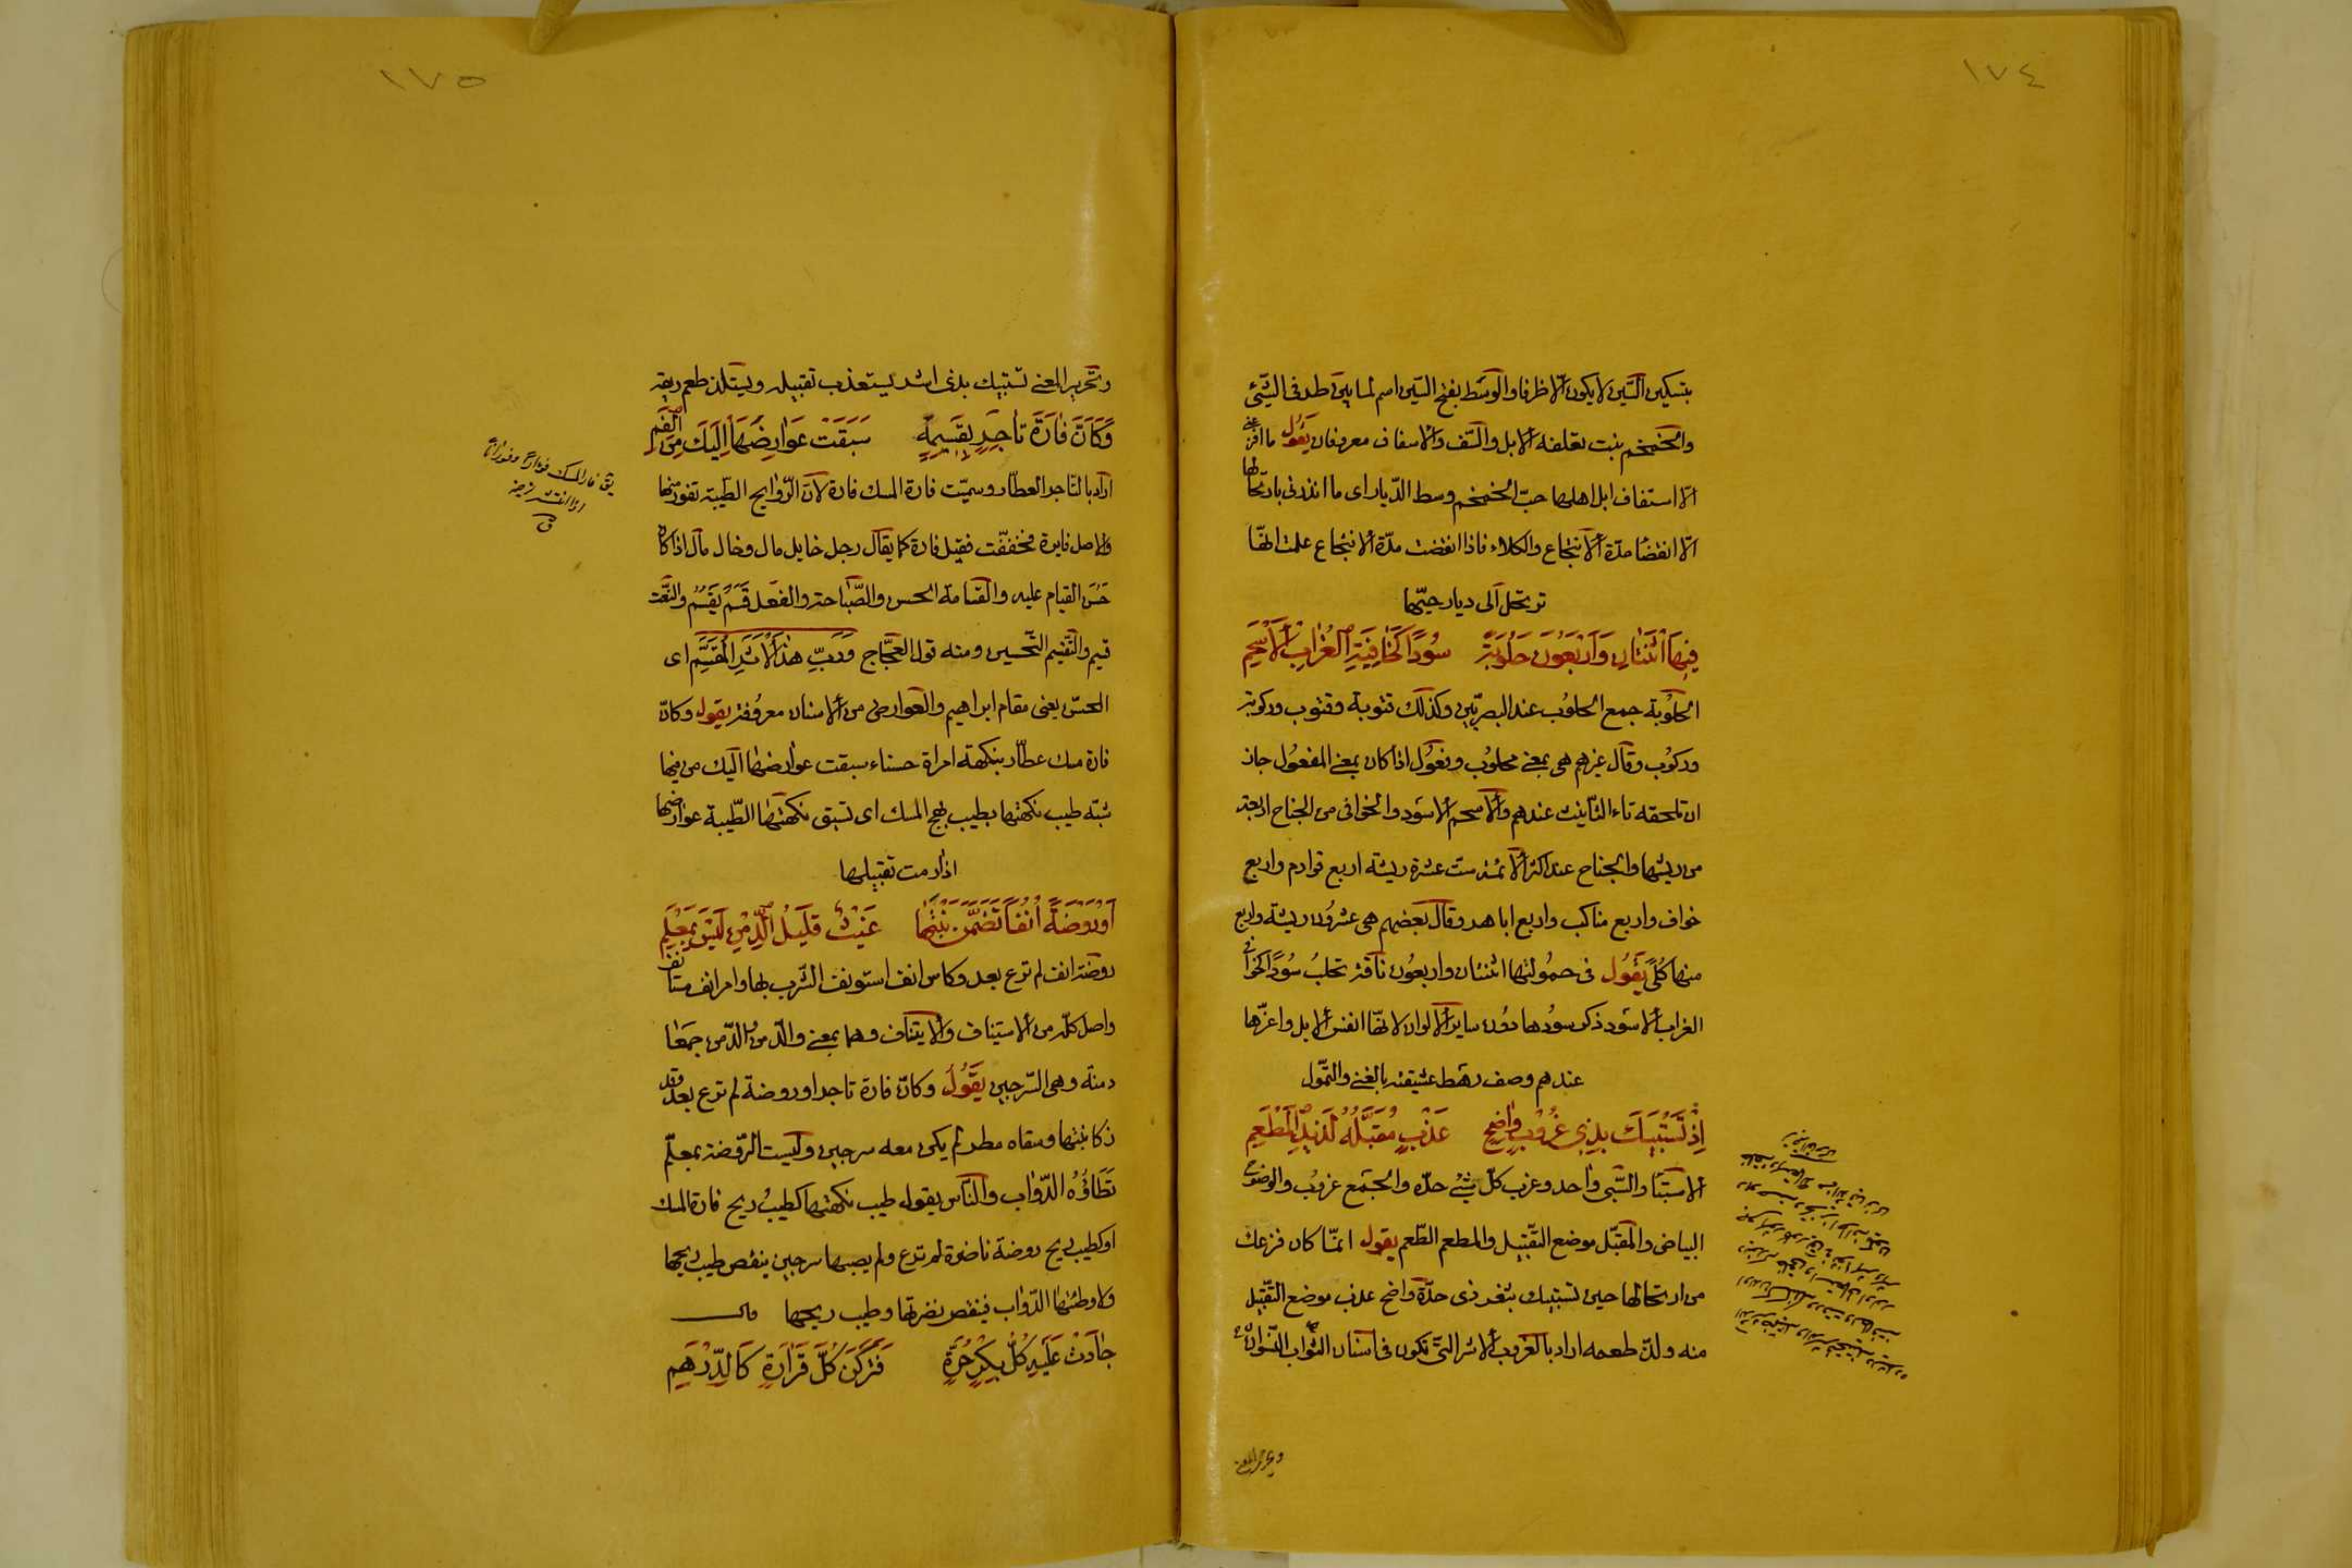 ١٧٤
بتسكين السّين لا يكون الّا ظرفا والوسَط بفتح السّين اسم لما بين طرفى الشّئ
والخمخم نبت تعلفه الابل والسّف والاسفاف معروفان يقُول ما افزعنى
الّا استفاف ابل اهلها حبّ الخمخم وسط الدّيار اى ما انذرنى بارتحالها
الّا انقضا مدّة الانتجاع والكلاء فاذا انقضت مدّة الانتجاع علمت انهّا
ترتحل الى ديار حيّها
فِيهَا اثْنَتَانِ وَاَرْبَعُونَ حَلُوبَةً سُودًا كَخَافِيَةِ الغُرَابِ الاَسْحَمِ
الحلُوبَة جمع الحلوُب عند البصريّين وكذلك قتوبة وقتوب وركوبة
وركوُب وقال غيرهم هى بمعنى محلوُب وفعوُل اذا كان بمعنى المفعوُل جاز
ان تلحقه تاء التّأنيث عندهم والاسحم الاسود والخوافى من الجناح اربعة
من ريشها والجناح عند اكثر الائمّة ست عشرة ريشة اربع قوادم واربع
خواف واربع مناكب واربع اباهر وقال بعضهم هى عشروُن ريشة واربع
منها كُلًى يَقُول فى حمُولتها اثنتان واربعُون ناقة تحلبُ سُودًا كخوافى
الغراب الاسَود ذكر سوُدها دوُن ساير الالوان لانهّا انفس الابل واعزّها
عندهم وصف رهَط عشيقته بالغنى والتمّول
اِذْ تَسْتَبِيكَ بِذِى غُرُوبٍ وَاضِحٍ عَذْبٍ مُقَبَّلُهُ لَذِيذِ المَطْعَمِ
الاستبَا والسَّبى واحد وغرب كلّ شئ حدّه والجَمع غروُب والوضوُح
البياض والمقبّل موضع التقّبيل والمطعم الطّعم يقول انمّا كان فزعك
من ارتحالها حين تستبيك بثغر ذى حدّة واضح عذب موضع التقّبيل
منه ولذّ طعمه اراد بالغروب الاشر التى تكون فى اسنان الشواب
وتحرير المعنى
١٧٥
وتحرير المعنى تستبيك بذى اشر يستعذب تقبيله ويستلذ طعم ريقه
وَكَاَنَّ فَارَةَ تَاجِرٍ بِقَسِيمَةٍ سَبَقَتْ عَوَارِضَهَا اِلَيْكَ مِنَ الْفَمِ
اراد بالتاجر العطّار وسميّت فارة المسك فارة لانّ الرّوايح الطّيبة تفور منها
والاصل فايرة فخففّت فقيل فارة كما يقال رجل خايل مال وخال مال اذا كان
حَسَنَ القيام عليه والقسامة الحسن والصّباحة والفعل قَسُمَ يَقْسُمُ والنّعت
قسيم والتّقسيم التّحسين ومنه قول العجّاج وَرَبِّ هذَا الاَثَرِ المُقَسَّمِ اى
المحسّن يعنى مقام ابراهيم والعوارض من الاسنان معروُفة يقول وكانّ
فارة مسك عطّار بنكهة امراة حسناء سبقت عوارضهَا اليك من فيها
شبّه طيب نكهتها بطيب ريح المسك اى تسبق نكهتها الطّيبة عوارضها
اذا رمت تقبيلها
اَوْ رَوْضَةً اُنُفًا تَضَمَّنَ نَبْتَهَا غَيْثٌ قَلِيلُ الدِّمْنِ لَيْسَ بِمَعْلَمِ
روضة انف لم ترع بعد وكاس انف استونف الشّرب بها وامر انف مستانف
واصل كلّه من الاستيناف والايتناف وهما بمعنى والدّمنُ والدّمن جمعَا
دمنة وهى السّرجين يقُول وكانّ فارة تاجر او روضة لم ترع بعد وقد
زكا نبتها وسقاه مطر لم يكن معه سرجين وليست الرّوضة بمعلم
تَطَاؤُه الدّواب والنّاس يقول طيب نكهتها كطيب ريح فارة المسك
او كطيب ريح روضة ناضرة لم ترع ولم يصبها سرجين ينقص طيب ريحها
ولا وطئتها الدّواب فينقص نضرتها وطيب ريحها
جَادَتْ عَلَيْهِ كُلُّ بِكْرٍ حُرَّةٍ فَتَرَكْنَ كُلَّ قَرَارَةٍ كَالدِّرْهَمِ